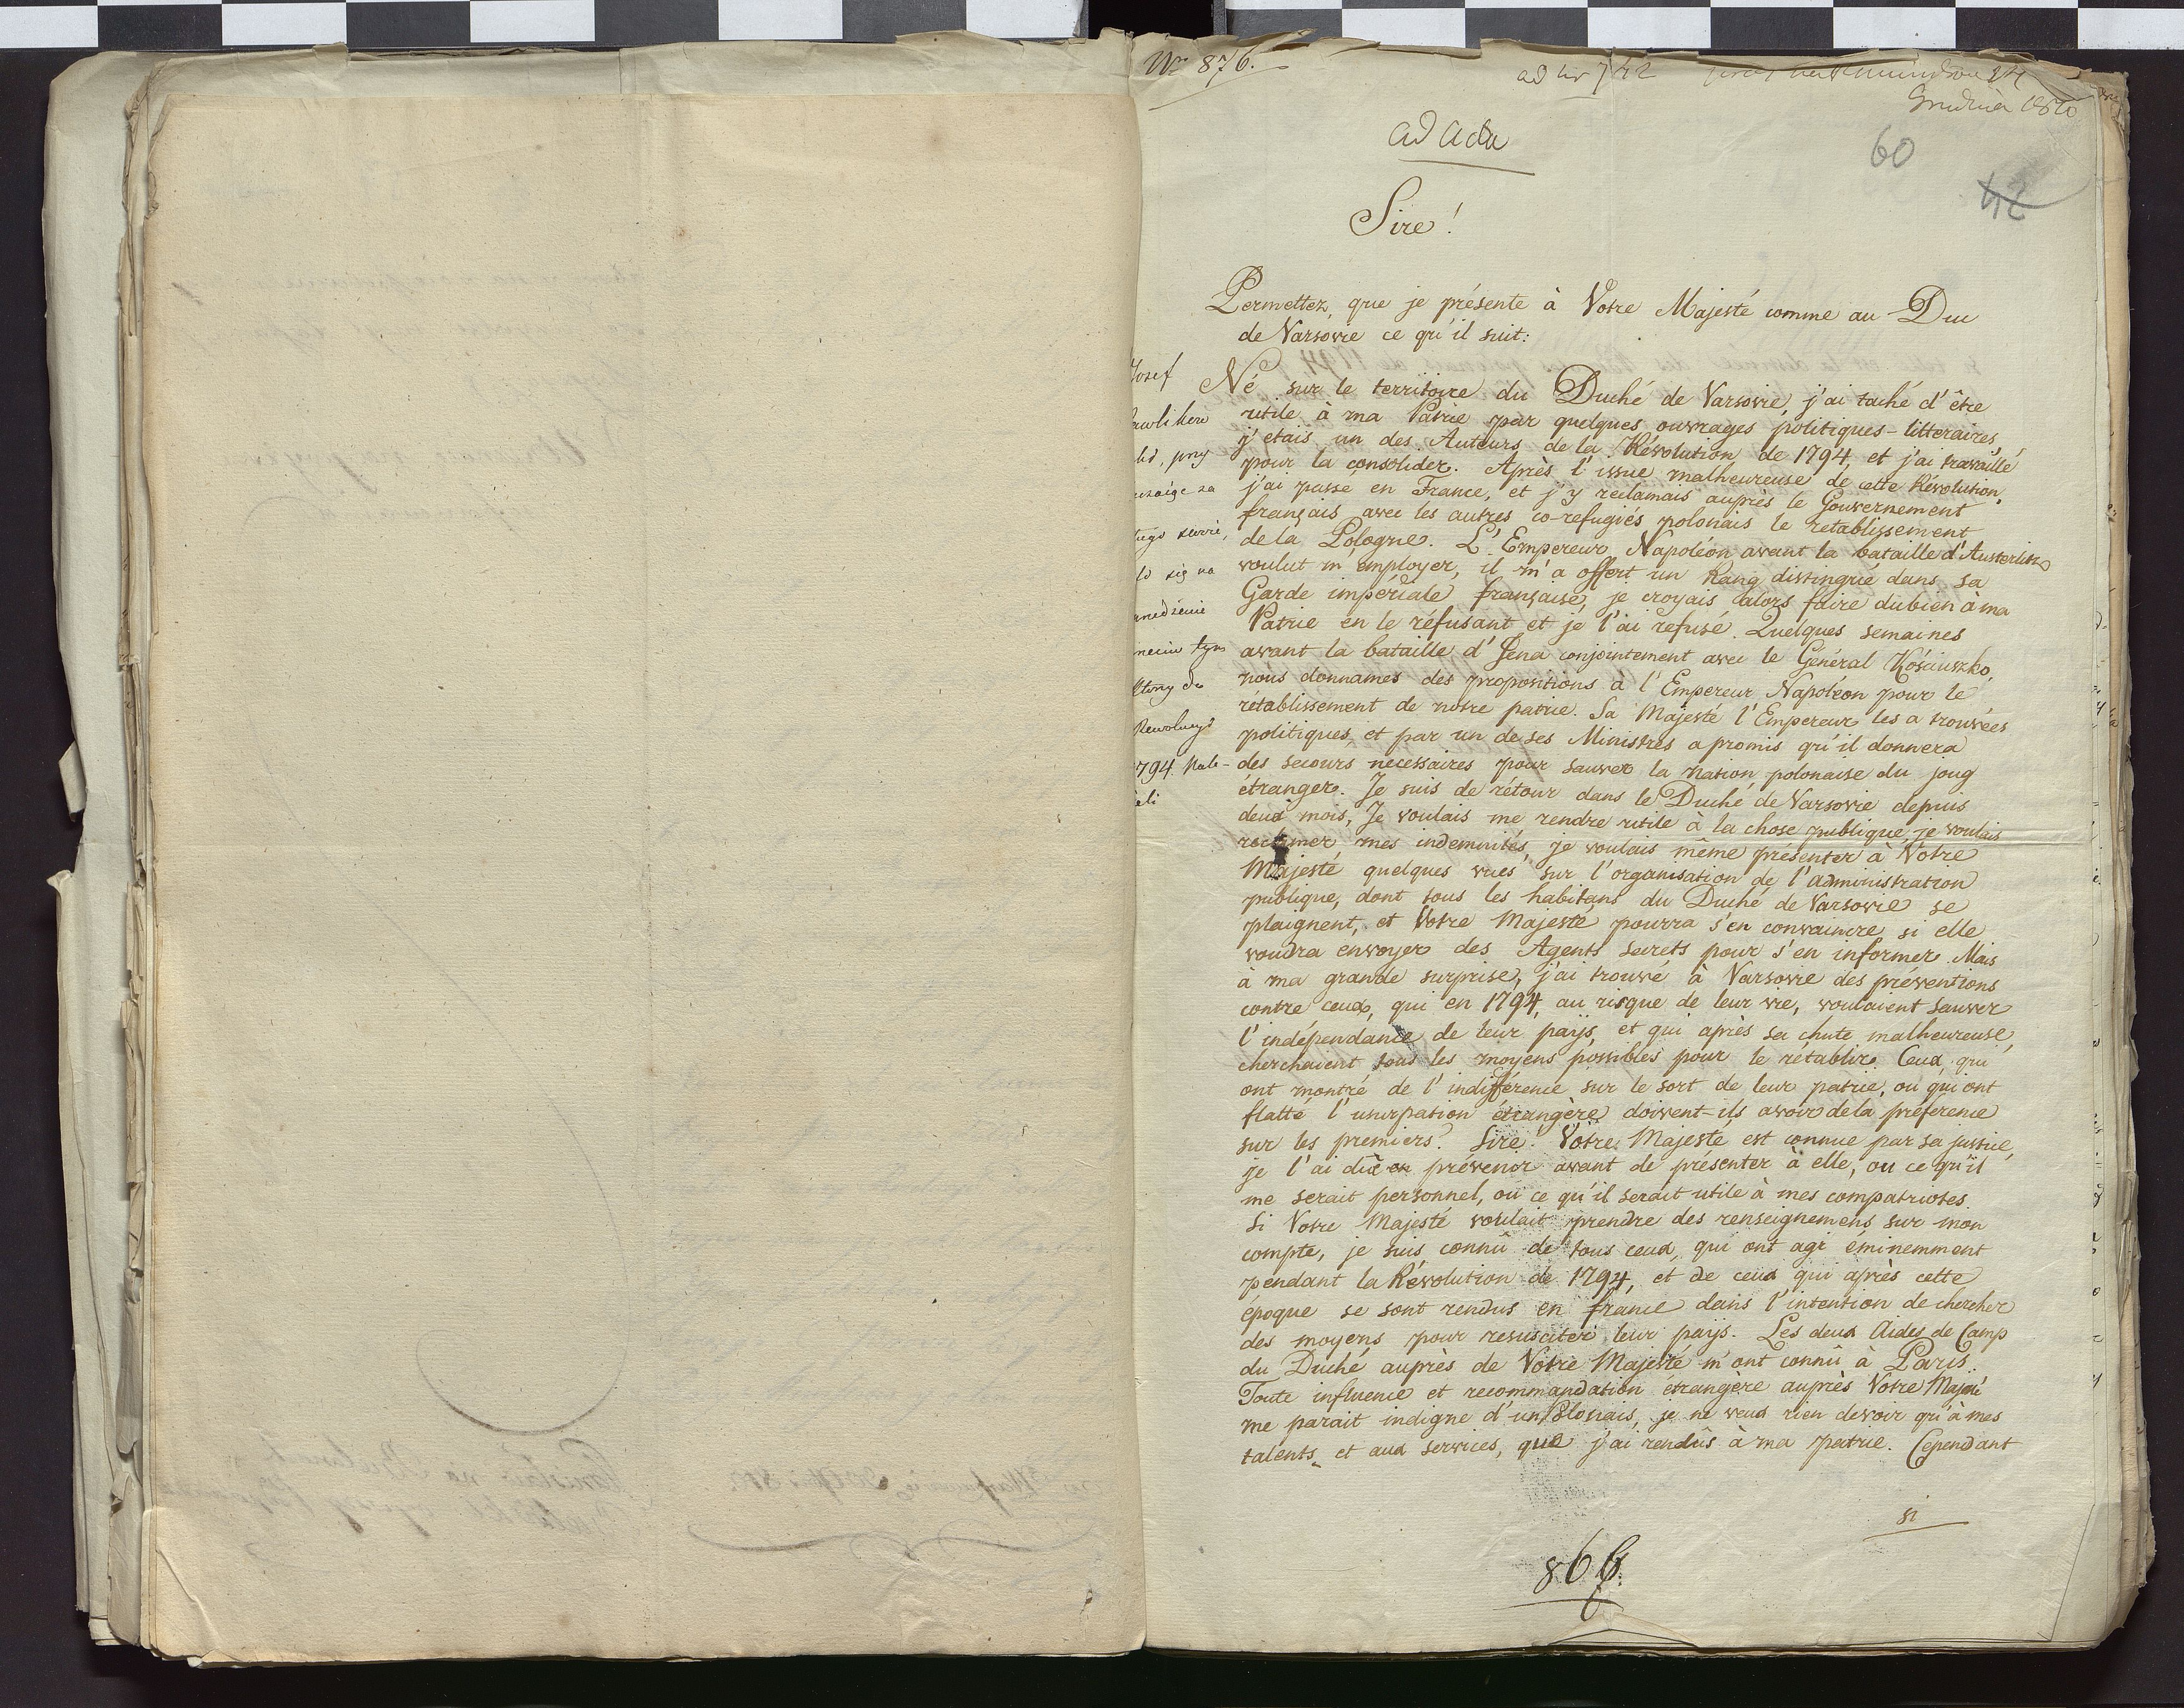 Nr 876.
ad nr 742
Grudnia 1810
ad acta
60
42
Sire!
Permettez, que je présente à Votre Majesté comme au Duc
de Varsovie ce qu'il suit:
Né sur le territoire du Duché de Varsovie, j'ai taché d'être
utile à ma Patrie par quelques ouvrages politiques-litteraires,
j'etais un des Auteurs de la Révolution de 1794, et j'ai travaillé
pour la consolider. Après l'issue malheureuse de cette Révolution,
j'ai passe en France, et j'y reclamais auprès le Gouvernement
français avec les autres co-refugiés polonais le retablissement
de la Pologne. L'Empereur Napoléon avant la bataille d'Austerlitz
voulut m'employer, il m'a offert un Rang distingué dans sa
Garde impériale française, je croyais alors faire du bien à ma
Patrie en le réfusant et je l'ai refusé. Quelques semaines
avant la bataille d'Jena conjointement avec le Général Kościuszko,
nous donnames des propositions à l'Empereur Napoléon pour le
rétablissement de notre patrie. Sa Majesté l'Empereur les a trouvées
politiques, et par un de ses Ministres a promis qu'il donnera
des secours necessaires pour sauver la nation polonaise du joug
étranger. Je suis de rétour dans le Duché de Varsovie depuis
deux mois, Je voulais me rendre utile à la chose publique, je voulais
reclamer mes indemnités, je voulais même présenter à Votre
Majesté quelques vues sur l'organisation de l'administration
publique, dont tous les habitans du Duché de Varsovie se
plaignent, et Votre Majesté pourra s'en convaincre, si elle
voudra envoyer des Agents secrets pour s'en informer. Mais
à ma grande surprise, j'ai trouvé à Varsovie des préventions
contre ceux, qui en 1794, au risque de leur vie, voulaient sauver
l'indépendance de leur païs, et qui après sa chute malheureuse,
cherchaient tous les moyens possibles pour le rétablir. Ceux, qui
ont montré de l'indifférence sur le sort de leur patrie, ou qui ont
flatté l'usurpation étrangère doivent-ils avoir de la préference
sur les premiers? Sire! Votre Majesté est connue par sa justice,
je l'ai dû en prévenir avant de présenter à elle, ou ce qu'il
me serait personnel, ou ce qu'il serait utile à mes compatriotes.
Si Votre Majesté voulait prendre des renseignemens sur mon
compte, je suis connû de tous ceux, qui ont agi éminemment
pendant la Révolution de 1794, et de ceux qui après cette
époque se sont rendus en france dans l'intention de chercher
des moyens pour resusciter leur païs. Les deux Aides de Camp
du Duché auprès de Votre Majesté m'ont connû à Paris.
Toute influence et recommandation étrangère auprès Votre Majesté
me parait indigne d'un Polonais, je ne veux rien devoir qu'à mes
talents, et aux services, que j'ai rendûs à ma patrie. Cependant
si
866.
Josef
tugo
sig na
Rewolucyi
1794 nale-